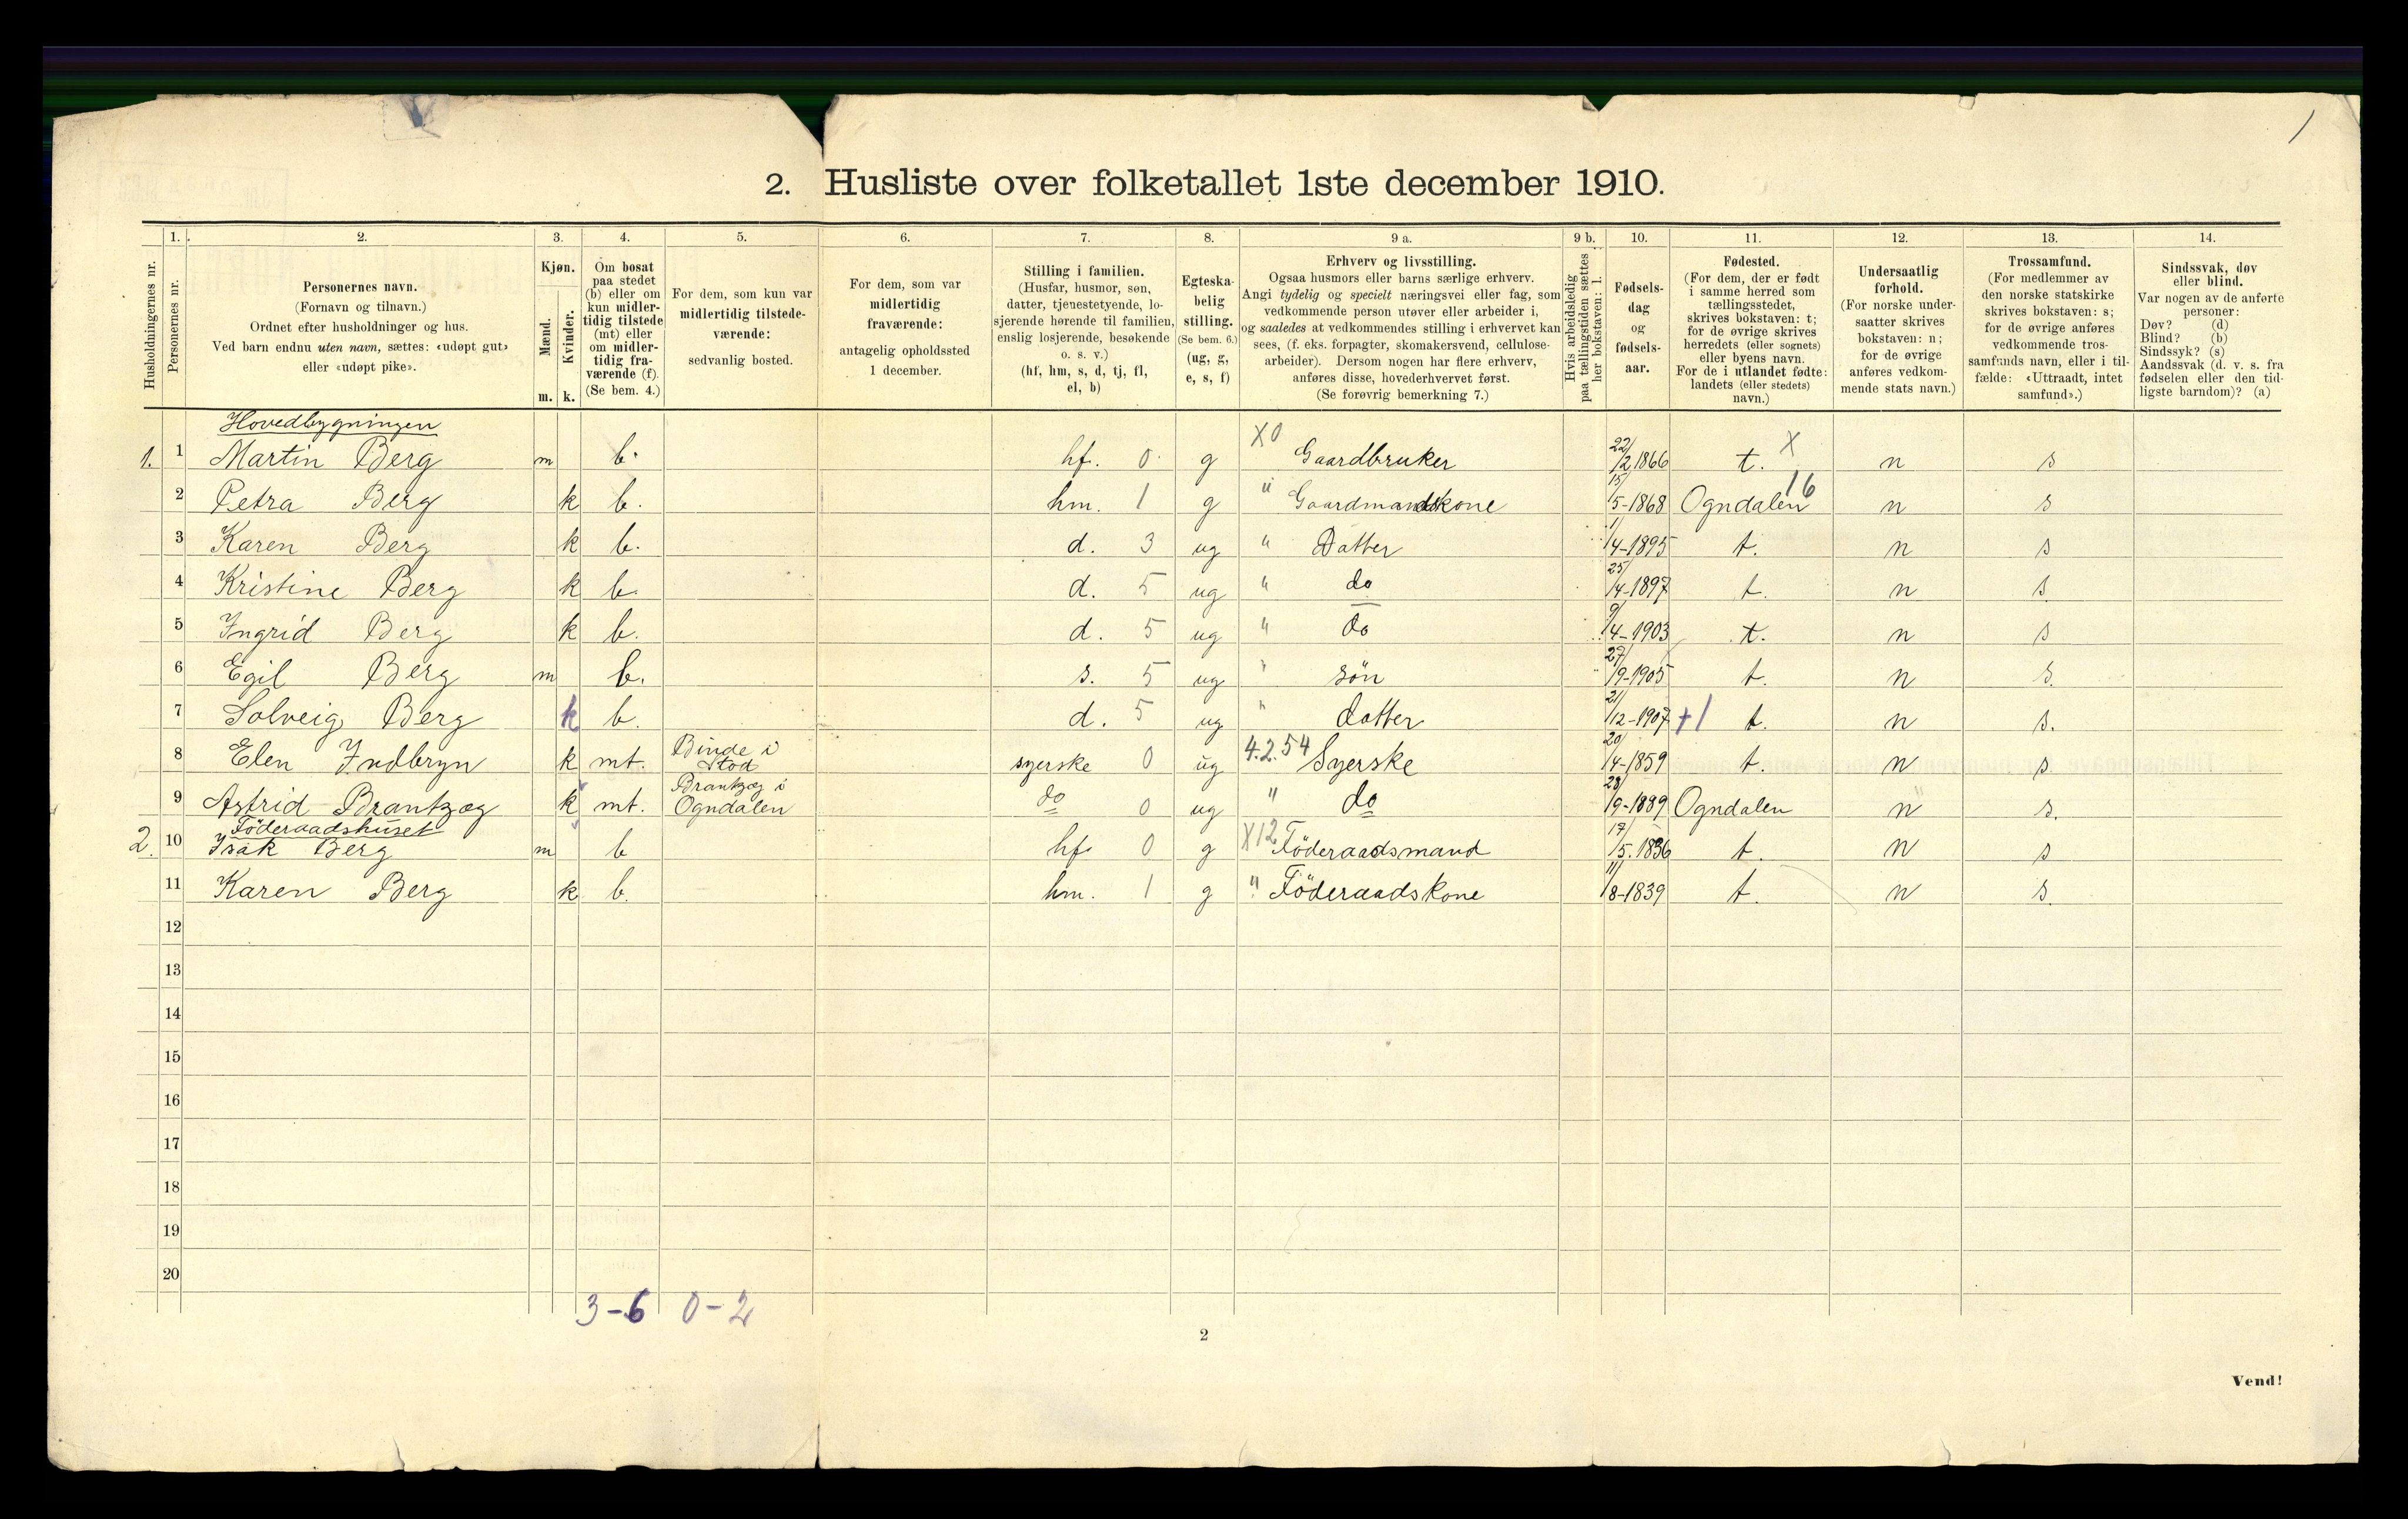 /
2. Husliste over folketallet 1ste december 1910.
Husholdningernes nr.
1. Personernes nr.
2. Personernes navn.
(Fornavn og tilnavn.)
Ordnet efter husholdninger og hus.
Ved barn endnu uten navn, sættes: «udøpt gut»
eller «udøpt pike».
3. Kjøn.
Mænd. Kvinder.
m. k.
4. Om bosat
paa stedet
(b) eller om
kun midler-
tidig tilstede
(mt) eller
om midler-
tidig fra-
værende (f).
(Se bem. 4.)
5. For dem, som kun var
midlertidig tilstede-
værende:
sedvanlig bosted.
6. For dem, som var
midlertidig
fraværende:
antagelig opholdssted
1 december.
7. Stilling i familien.
(Husfar, husmor, søn,
datter, tjenestetyende, lo-
sjerende hørende til familien,
enslig losjerende, besøkende
o. s. v.)
(hf, hm, s, d, tj, fl,
el, b)
8. Egteska-
belig
stilling.
(Se bem. 6.)
(ug, g,
e, s, f)
9 a. Erhverv og livsstilling.
Ogsaa husmors eller barns særlige erhverv.
Angi tydelig og specielt næringsvei eller fag, som
vedkommende person utøver eller arbeider i,
og saaledes at vedkommendes stilling i erhvervet kan
sees, (f. eks. forpagter, skomakersvend, cellulose-
arbeider). Dersom nogen har flere erhverv,
anføres disse, hovederhvervet først.
(Se forøvrig bemerkning 7.)
9 b. Hvis arbeidsledig
paa tællingstiden sættes
her bokstaven: l.
10. Fødsels-
dag
og
fødsels-
aar.
11. Fødested.
(For dem, der er født
i samme herred som
tællingsstedet,
skrives bokstaven: t;
for de øvrige skrives
herredets (eller sognets)
eller byens navn.
For de i utlandet fødte:
landets (eller stedets)
navn.)
12. Undersaatlig
forhold.
(For norske under-
saatter skrives
bokstaven: n;
for de øvrige
anføres vedkom-
mende stats navn.)
13. Trossamfund.
(For medlemmer av
den norske statskirke
skrives bokstaven: s;
for de øvrige anføres
vedkommende tros-
samfunds navn, eller i til-
fælde: «Uttraadt, intet
samfund».)
14. Sindssvak, døv
eller blind.
Var nogen av de anførte
personer:
Døv? (d)
Blind? (b)
Sindssyk? (s)
Aandssvak (d. v. s. fra
fødselen eller den tid-
ligste barndom)? (a)
Hovedbygningen
1. 1 Martin Berg m b. hf. 0 g X0 Gaardbruker 22/2 1866 t. X n s
2 Petra Berg k b. hm. 1 g " Gaardmandskone 15/5-1868 Ogndalen 16 n s
3 Karen Berg k b. d. 3 ug " Datter 1/4-1895 t. n s
4 Kristine Berg k b. d. 5 ug " do 25/4-1897 t. n s
5 Ingrid Berg k b. d. 5 ug " do 9/4-1903 t. n s
6 Egil Berg m b. s. 5 ug " søn 27/9-1905 t. n s.
7 Solveig Berg k b. d. 5 ug " datter 21/12-1907 +1 t. n s.
8 Elen Indbryn k mt. Binde i Stod syerske 0 ug 4.2.54 Syerske 20/4-1859 t. n s
9 Astrid Brantzæg k mt. Brantzæg i Ogndalen do 0 ug " do 28/9-1889 Ogndalen n s.
Föderaadshuset
2. 10 Isak Berg m b hf 0 g X12 Föderaadsmand 17/5.1836 t. n s
11 Karen Berg k b. hm. 1 g " Föderaadskone 11/8-1839 t. n s.
12
13
14
15
16
17
18
19
20
3-6 0-2
2
Vend!